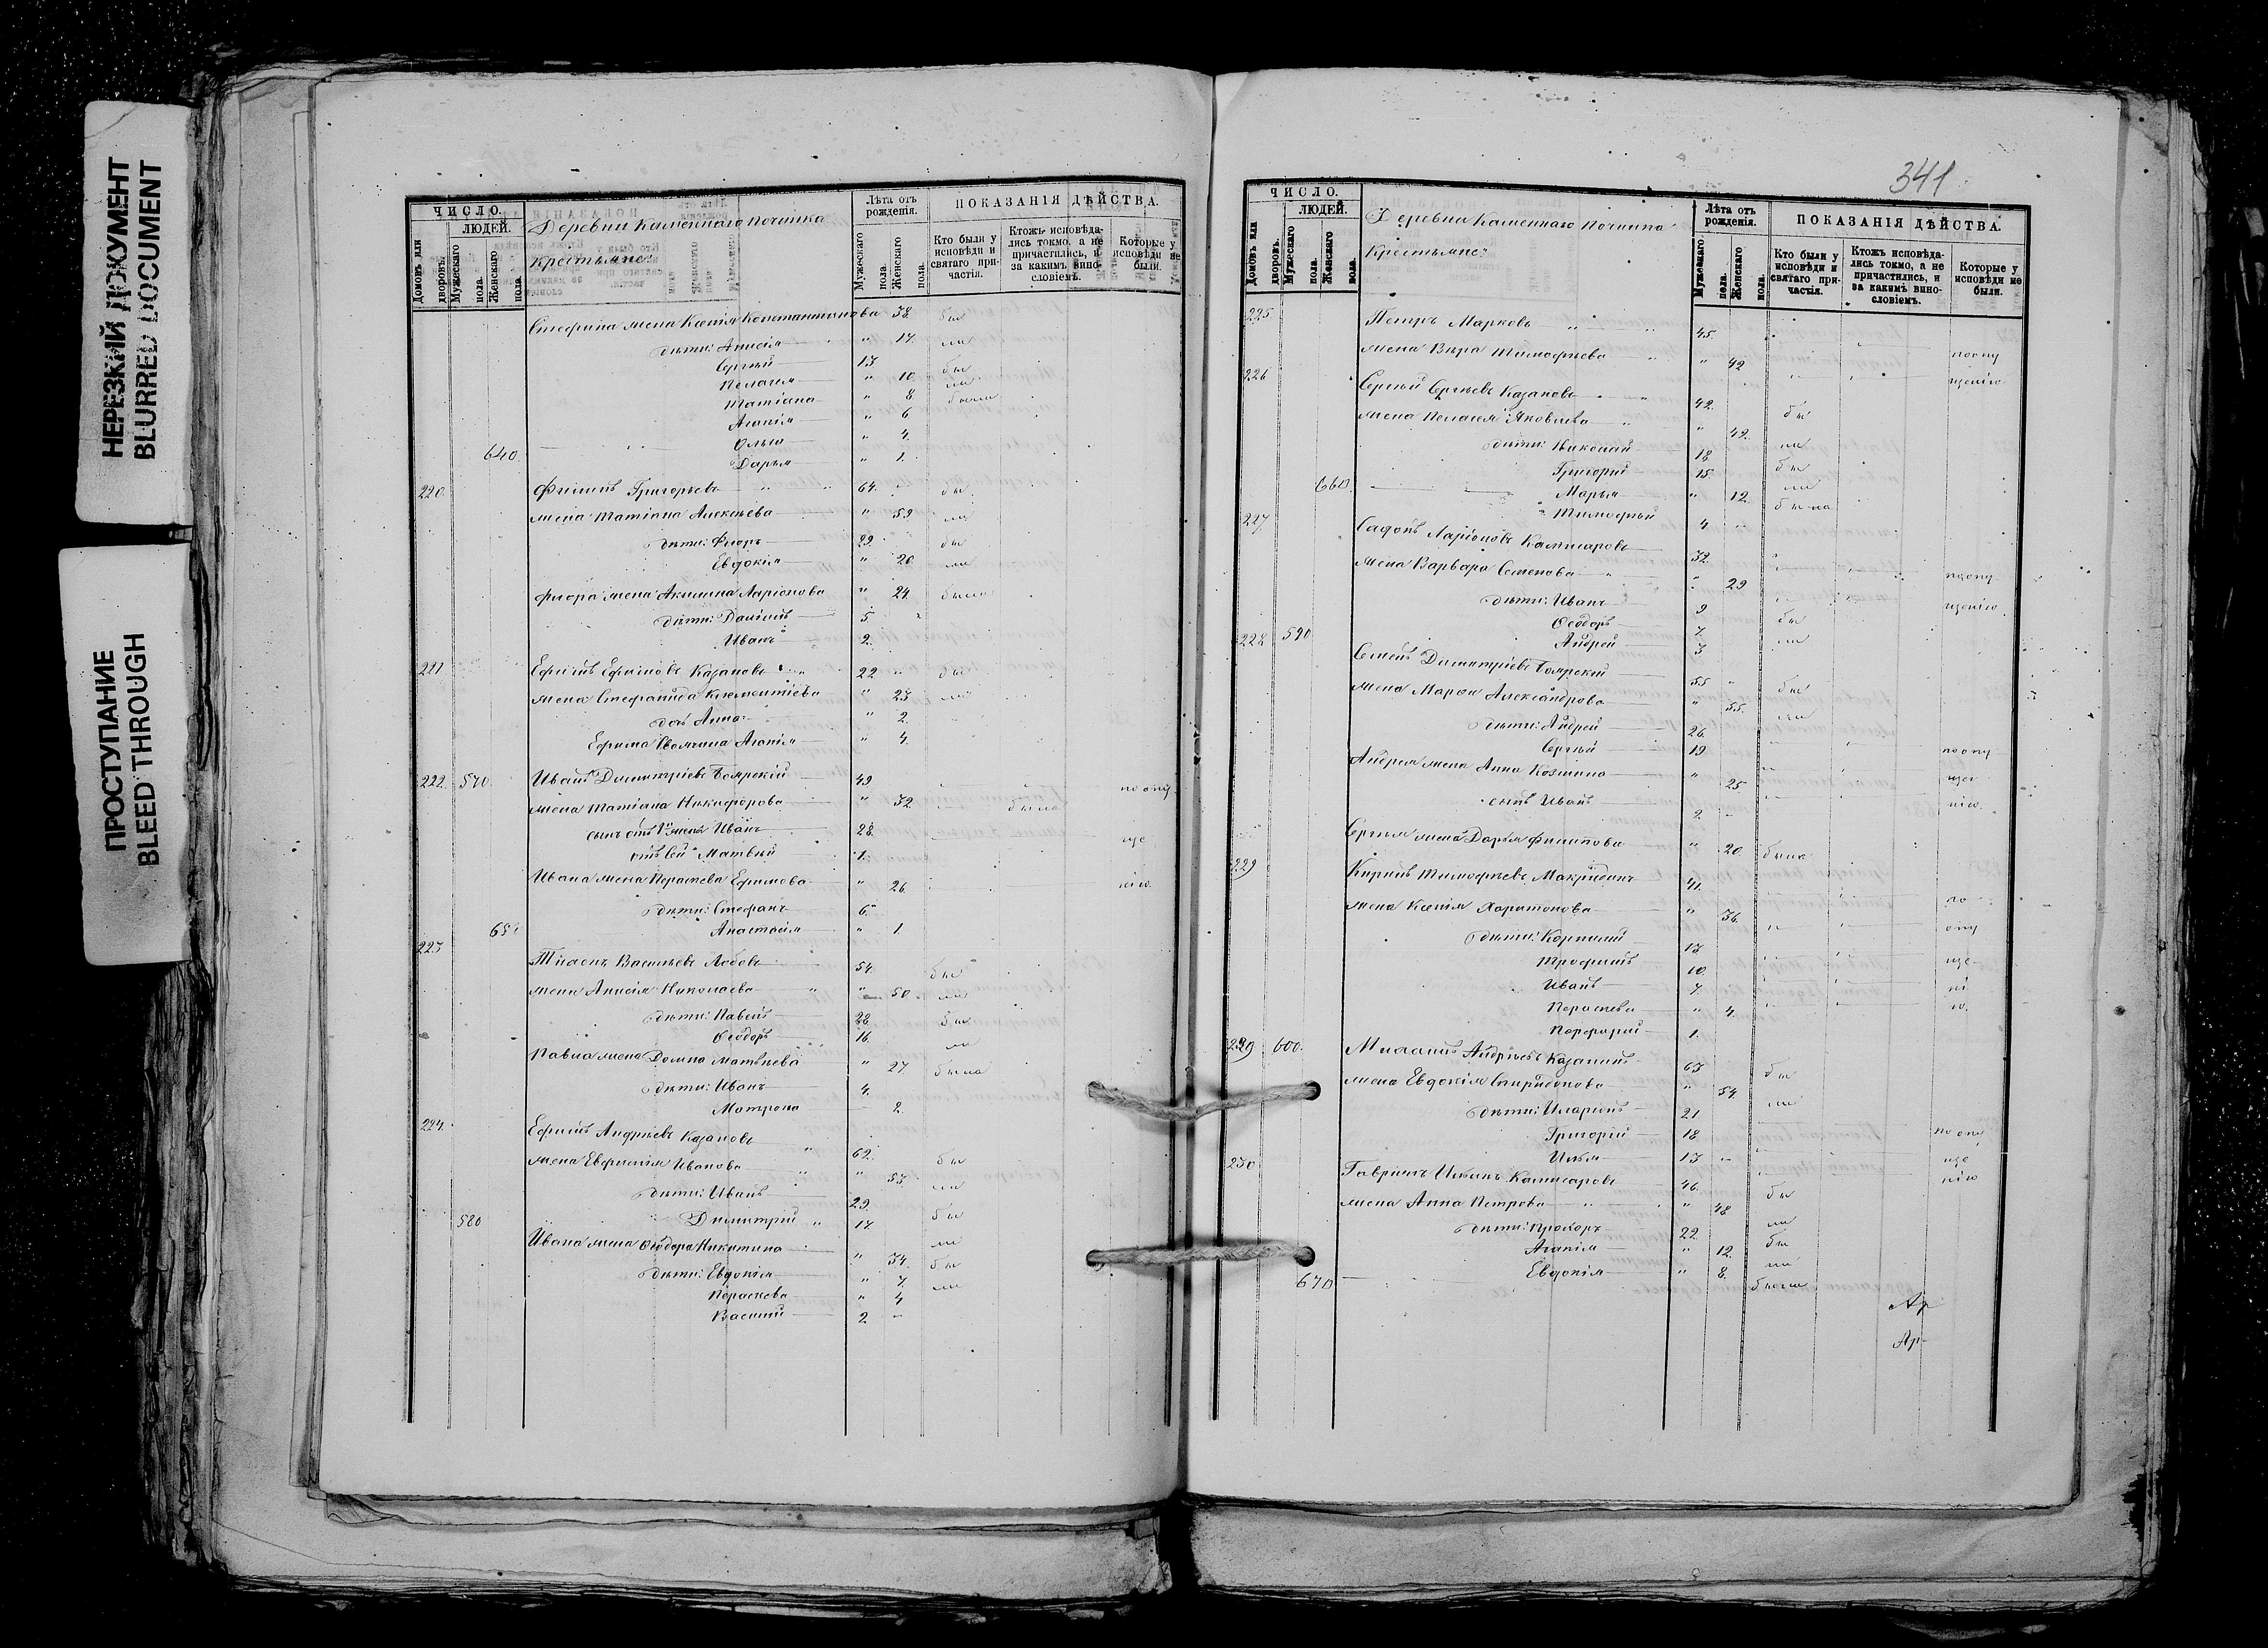 НЕРЕЗКИЙ ДОКУМЕНТ
BLURRED DOCUMENT
ПРОСТУПАНИЕ
BLEED THROUGH
ЧИСЛО.
ЛЮДЕЙ.
Домовъ или дворовъ.
Мужескаго пола.
Женскаго пола.
Деревни Каменнаго Починка
крестьяне:
Лѣта отъ рожденія.
Мужескаго пола.
Женскаго пола.
ПОКАЗАНІЯ ДѢЙСТВА.
Кто были у исповѣди и святаго причастія.
Ктожъ исповѣдались токмо, а не причастились, и за какимъ винословіемъ.
Которые у исповѣди не были.
Стефана жена Ксенія Константинова 38 бы
дѣти: Анисія " 17 ли
Сергѣй 13 бы
Пелагея " 10 ли
Татіана " 8 была
Агапія " 6
Ольга " 4
640 Дарья " 1
220 Филипъ Григорьевъ 64 бы
жена Татіана Алексѣева " 59 ли
дѣти: Флоръ 29 бы
Евдокія " 20 ли
Флора жена Акилина Ларіонова " 24 была
дѣти: Даніилъ 5
Иванъ 2
221 Ефимъ Ефимовъ Казаковъ 22 бы
жена Стефанида Клементіева " 23 ли
дочь Анна " 2
Ефима Агапія " 4
222 570 Иванъ Димитріевъ Боярскій 49 по опу
жена Татіана Никифорова " 32 была
сынъ отъ 1й жены Иванъ 28 ще
отъ сей Матвѣй 1
Ивана жена Параскева Ефимова " 26 нію
дѣти: Стефанъ 6
Анастасія " 1
223 Васильевъ 54 бы
жена Анисія Николаева " 50 ли
дѣти: Павелъ 28 бы
Ѳеодоръ 16 ли
Павла жена Домна Матвѣева " 27 была
дѣти: Иванъ 4
Матрона 2
224 Ефимъ Андреевъ Казаковъ 62 бы
жена Евфимія Иванова " 53 ли
дѣти: Иванъ 29 бы
580 Димитрій 17 ли
Ивана жена Ѳеодора Никитина " 34 бы
дѣти: Евдокія " 7 ли
Параскева " 4
Василій 2
341
ЧИСЛО.
ЛЮДЕЙ.
Домовъ или дворовъ.
Мужескаго пола.
Женскаго пола.
Деревни Каменнаго Починка
Крестьяне:
Лѣта отъ рожденія.
Мужескаго пола.
Женскаго пола.
ПОКАЗАНІЯ ДѢЙСТВА.
Кто были у исповѣди и святаго причастія.
Ктожъ исповѣдались токмо, а не причастились, и за какимъ винословіемъ.
Которые у исповѣди не были.
225 Петръ Марковъ 45 по опу
жена Вѣра Тимофѣева " 42 щенію
226 Сергѣй Сергѣевъ Казаковъ 42 бы
жена Пелагея Яковлева " 42 ли
дѣти: Николай 18 бы
Григорій 15 ли
660 Марья " 12 была
Тимофѣй 4
227 Сафонъ Ларіоновъ Камисаровъ 32 по опу
жена Варвара Семенова " 29 щенію
дѣти: Иванъ 9 бы
Ѳеодоръ 7 ли
590 Андрей 3
228 Димитріевъ Боярскій 55 бы
жена Марѳа Александрова " 55 ли
дѣти: Андрей 26 по опу
Сергѣй 19 ще
Андрея жена Анна Козмина " 25 нію
сынъ Иванъ 2
Сергѣя жена Дарья Филипова " 20 была
229 Тимофѣевъ 41 по
жена Ксенія Харитонова " 36 опу
дѣти: Корнилій 13 ще
Трофимъ 10 ні
Иванъ 7 ю
Параскева " 4
Порфирій 1
229 600 Андреевъ 63 бы
жена Евдокія Спиридонова " 54 ли
дѣти: Иларіонъ 21 по опу
Григорій 18 ще
Илья 13 нію
230 Гавріилъ Ильинъ Камисаровъ 46 бы
жена Анна Петрова " 48 ли
дѣти: Прохоръ 22 бы
Агапія " 12 ли
670 Евдокія " 8 была
Ар
Ар